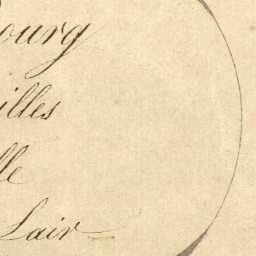 ourg
illes
lle
Lair